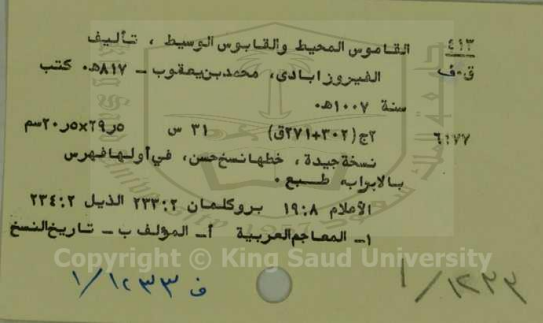 ٤١٣ القاموس المحيط والقابوس الوسيط ، تأليف
ق٠ف الفيروزابادى، محمدبن يعقوب - ٨١٧هـ٠ كتب
سنة ١٠٠٧هـ٠
٦١٧٧ ٢ج (٣٠٢+٢٧١ق) ٣١ س ٢٩٫٥×٢٠٫٥سم
نسخة جيدة ، خطها نسخ حسن، في أولها فهرس
بالابواب٠ طبع ٠
الأعلام ١٩:٨ بروكلمان ٢٣٣:٢ الذيل ٢٣٤:٢
١- المعاجم العربية أ- المؤلف ب - تاريخ النسخ
Copyright © King Saud University
ف ١/١٢٣٣
١/١٢٣٣